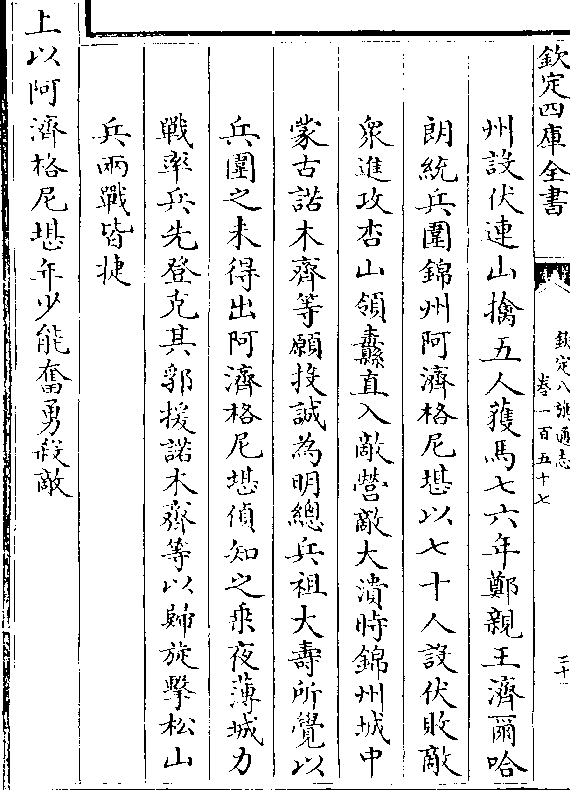 欽定四庫全書
欽定八旗通志
卷一百五十七
二十
州設伏連山擒五人獲馬七六年鄭親王濟爾哈
朗統兵圍錦州阿濟格尼堪以七十人設伏敗敵
衆進攻杏山領纛直入敵營敵大潰時錦州城中
蒙古諾木齊等願投誠為明總兵祖大壽所覺以
兵圍之未得出阿濟格尼堪偵知之乘夜薄城力
戰率兵先登克其郛援諾木齊等以歸旋擊松山
兵兩戰皆捷
上以阿濟格尼堪年少能奮勇殺敵